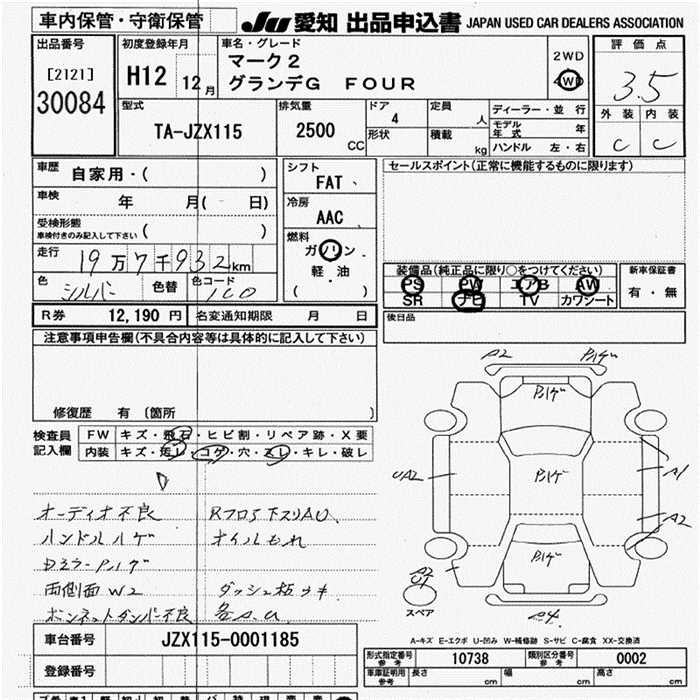 車内保管・守衛保管
JU 愛知 出品申込書 JAPAN USED CAR DEALERS ASSOCIATION
出品番号
[2121]
30084
初度登録年月
H12 12月
車名・グレード
マーク2
グランデG FOUR
2WD
4WD
評価点
3.5
外装 内装
C C
型式
TA-JZX115
排気量
2500 CC
ドア
4
形状
定員
人
積載
kg
ディーラー・並行
モデル年式 年
ハンドル 左・右
車歴
自家用・( )
車検
年 月( 日)
受検形態
車検付きのみ記入して下さい ( )
走行
19万7千932km
色
シルバー
色替
色コード
1C0
シフト
FAT、
冷房
AAC
燃料
ガソリン
軽・油
( )
セールスポイント(正常に機能するものに限ります)
装備品(純正品に限り○をつけてください)
PS PW エアB AW
SR ナビ TV カワシート
新車保証書
有・無
R券 12,190円 名変通知期限 月 日
後日品
注意事項申告欄(不具合内容等は具体的に記入して下さい)
修復歴 有 〔箇所 〕
検査員記入欄
FW キズ・飛石・ヒビ割・リペア跡・X要
内装 キズ・汚レ・コゲ・穴・スレ・キレ・破レ
オーディオ不良
ハンドルハゲ
両側面W2
ボンネットダンパー不良
Rフロア下スリAU、
オイルもれ
ダッシュ板ウキ
各A.U
A2
ハゲ
ハゲ
UA2
ハゲ
A1
A2
ハゲ
A2
A4
スペア
A-キズ E-エクボ U-凹み W-補修跡 S-サビ C-腐食 XX-交換済
車台番号 JZX115-0001185
登録番号
形式指定番号 参考 10738
類別区分番号 参考 0002
車庫証明用 参考 長さ cm 幅 cm 高さ cm